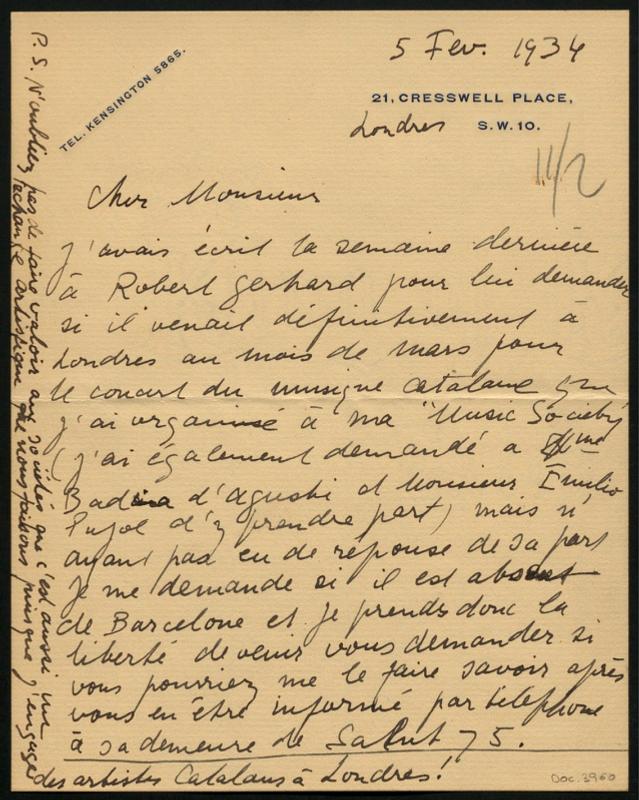 5 Fev. 1934
TEL. KENSINGTON 5865.
21, CRESSWELL PLACE,
Londres S.W.10.
11/2
Cher Monsieur
J'avais écrit la semaine dernière
à Robert Gerhard pour lui demander
si il venait définitivement à
Londres au mois de mars pour
le concert du musique catalane que
j'ai organisé à ma "Music Society"
(j'ai également demandé a Mme
Badia d'Agusti et Monsieur Emilio
Pujol d'y prendre part) mais n'
ayant pas eu de réponse de sa part
je me demande si il est absent
de Barcelone et je prends donc la
liberté de venir vous demander si
vous pourriez me le faire savoir après
vous en être informé par téléphone
à sa demeure de Salut 75.
P.S. N'oubliez pas de faire valoir aux Sociétés que c'est aussi un
échange artistique que nous faisons puisque j'engage
des artistes Catalans à Londres!
Doc. 3960